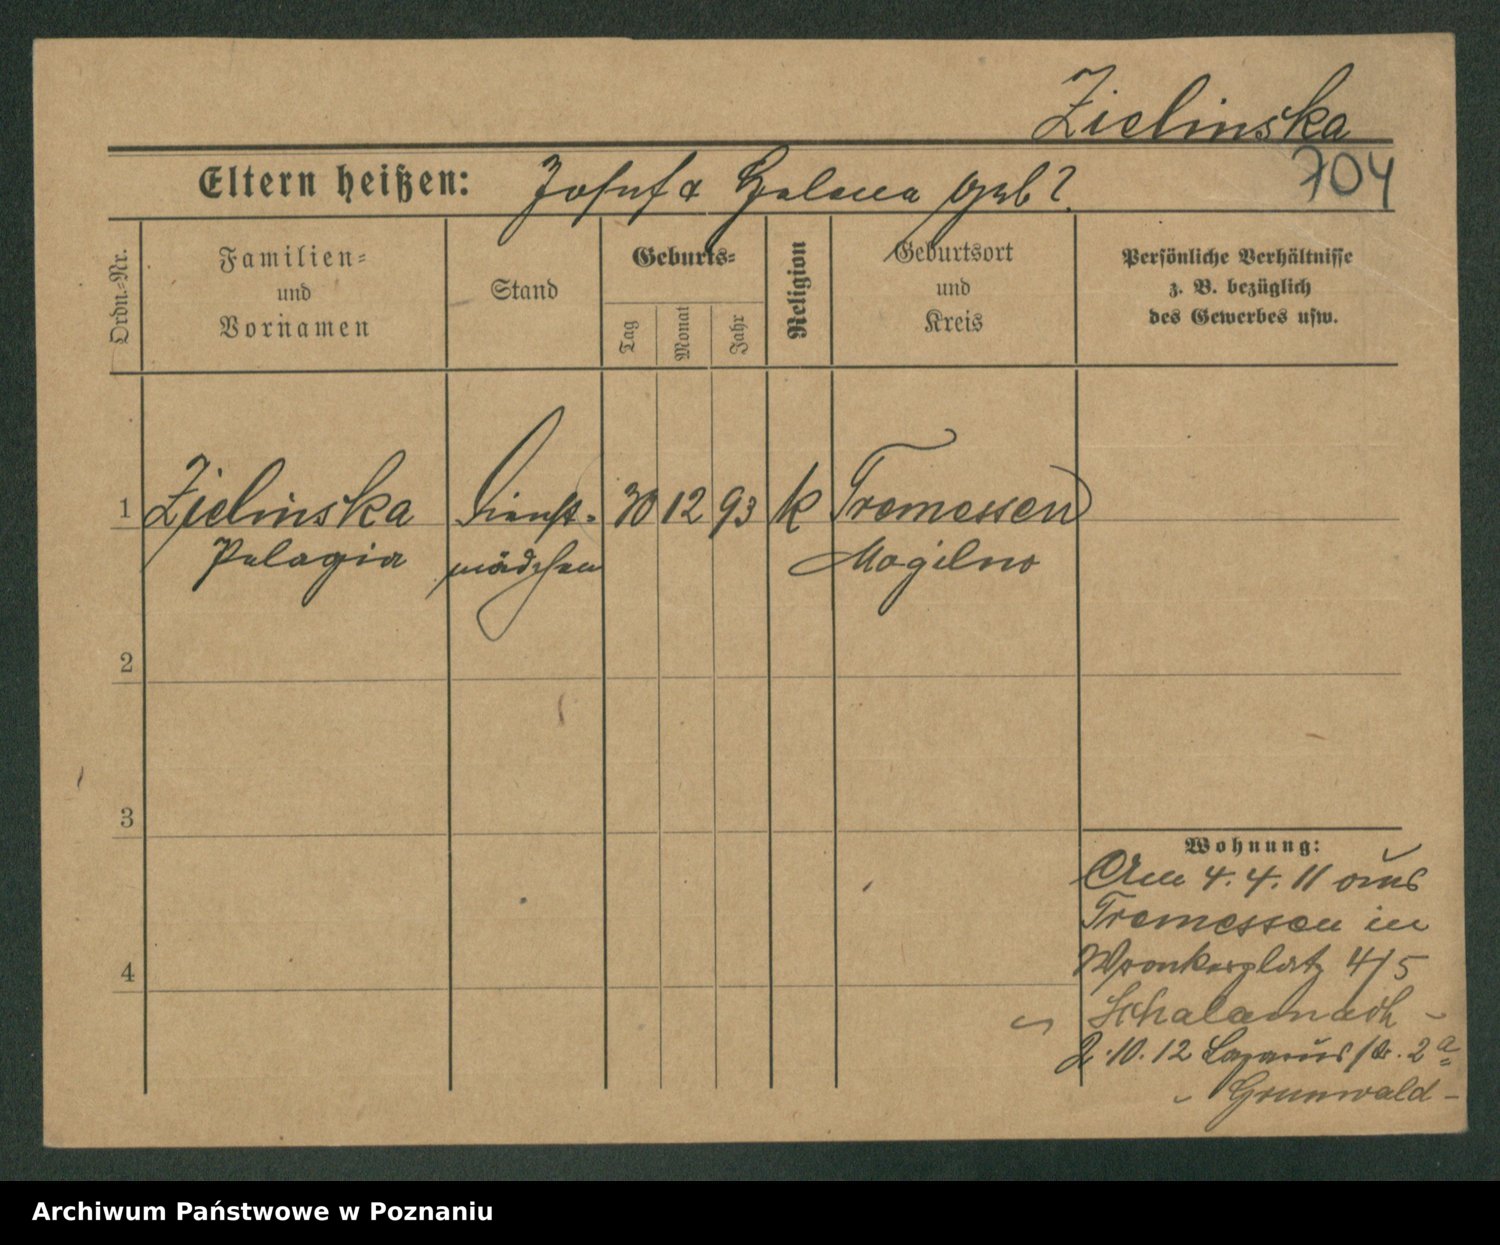 Zielinska
704
Eltern heißen: Josef & Helena geb?
Ordn.-Nr.
Familien-
und
Vornamen
Stand
Geburts-
Tag
Monat
Jahr
Religion
Geburtsort
und
Kreis
Persönliche Verhältnisse
z. B. bezüglich
des Gewerbes usw.
1 Zielinska Dienst- 30 12 93 k Tremessen
Pelagia mädchen Mogilno
2
3
4
Wohnung:
Am 4.4.11 aus
Tremessen in
Wronkerplatz 4/5
2.10.12 Lazarus str. 2a
Grunwald -
Archiwum Państwowe w Poznaniu